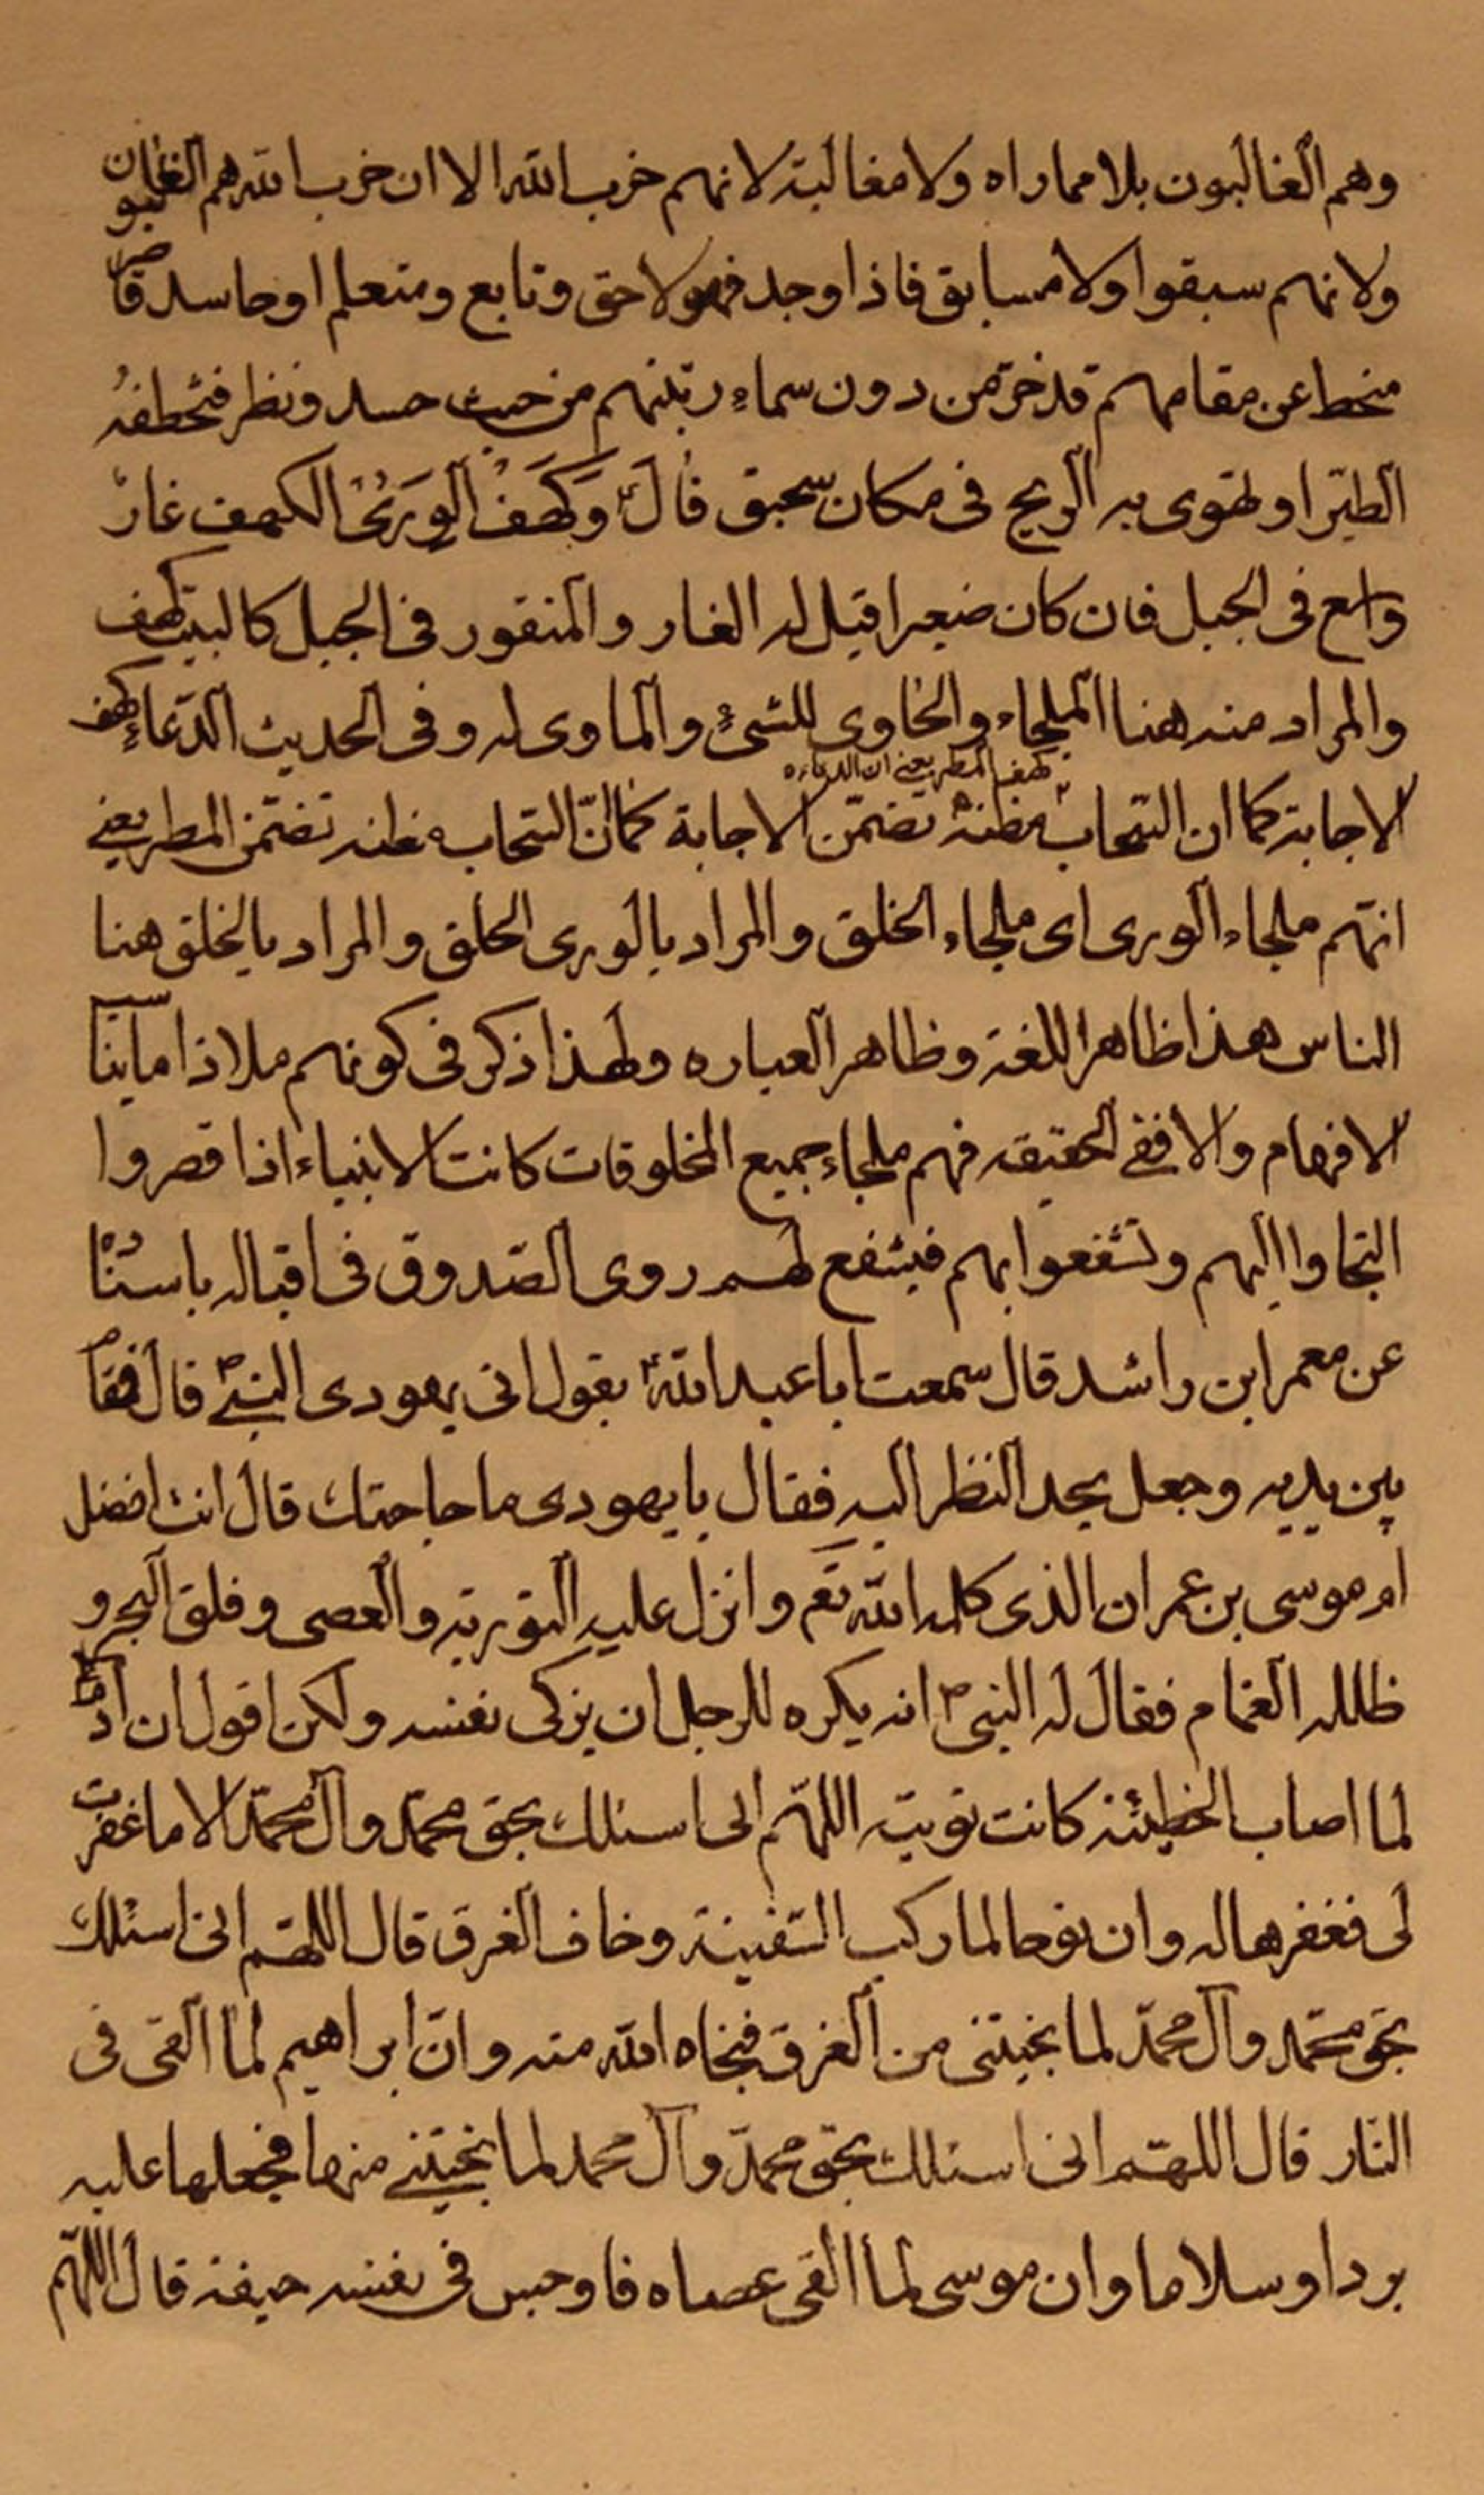 وهم الغالبون بلا مماراه ولا مغالبة لانهم خرب الله الا ان خرب الله هم الغالبون
ولانهم سبقوا ولا مسابق فاذا وجد فهو لاحق وتابع ومتعلم او حاسد قاصر
منحط عن مقامهم قد خرّ من دون سماءِ رتبتهم من حيث حسد ونظر فتخطفهُ
الطّير او تهوى به الريح فى مكان سحيق قال ؑ وَكَهَفْ الوَرَىٰ الكهف غار
واسع فى الجبل فان كان صغيرا قيل له الغار والمنقور فى الجبل كالبيت كهف
والمراد منه هنا الملجاء والحاوى للشئ والماوى له وفى الحديث الدّعاء كهف
كهف المطر يعنى ان الدعاء
الاجابة كما ان السّحاب مظنة تضمّن الاجابة كما انّ السّحاب مظنه تضمّن المطر يعنى
انهم ملجاء الورى اى ملجاء الخلق والمراد بالورى الخلق والمراد بالخلق هنا
الناس هذا ظاهر اللغة وظاهر العباره ولهذا ذكر فى كونهم ملاذا ما يناسب
الافهام والا ففى الحقيقه فهم ملجاء جميع المخلوقات كانت الانبياء اذا قصروا
التجاوا اليهم وتشفعوا بهم فيشفع لهم روى الصّدوق فى اقباله باسناده
عن معمر ابن راشد قال سمعت ابا عبد الله ؑ يقول اتى يهودى النبى ص قال فقام
بين يديه وجعل يحد النظر اليه فقال يا يهودى ما حاجتك قال انت افضل
ام موسى بن عمران الذى كلمه الله تعَ وانزل عليه التورية والعصى وفلق البحر و
ظلله الغمام فقال له النبى ص انه يكره للرجل ان يزكى نفسه ولكن اقول ان ادم
لما اصاب الخطيئة كانت توبته اللهّم انى اسئلك بحق محمّد وآل محمّد الا ما غفرت
لى فغفرها له وان نوحا لما ركب السّفينة وخاف الغرق قال اللهّم انى اسئلك
بحق محمّد وآل محمّد لما نجيتنى من الغرق فنجاه الله منه وانّ ابراهيم لمّا القى فى
النّار قال اللهّم انى اسئلك بحق محمّد وآل محمد لما نجيتنى منها فجعلها عليه
بردا وسلاما وان موسى لمّا القى عصاه فاوجس فى نفسه خيفة قال اللهّم